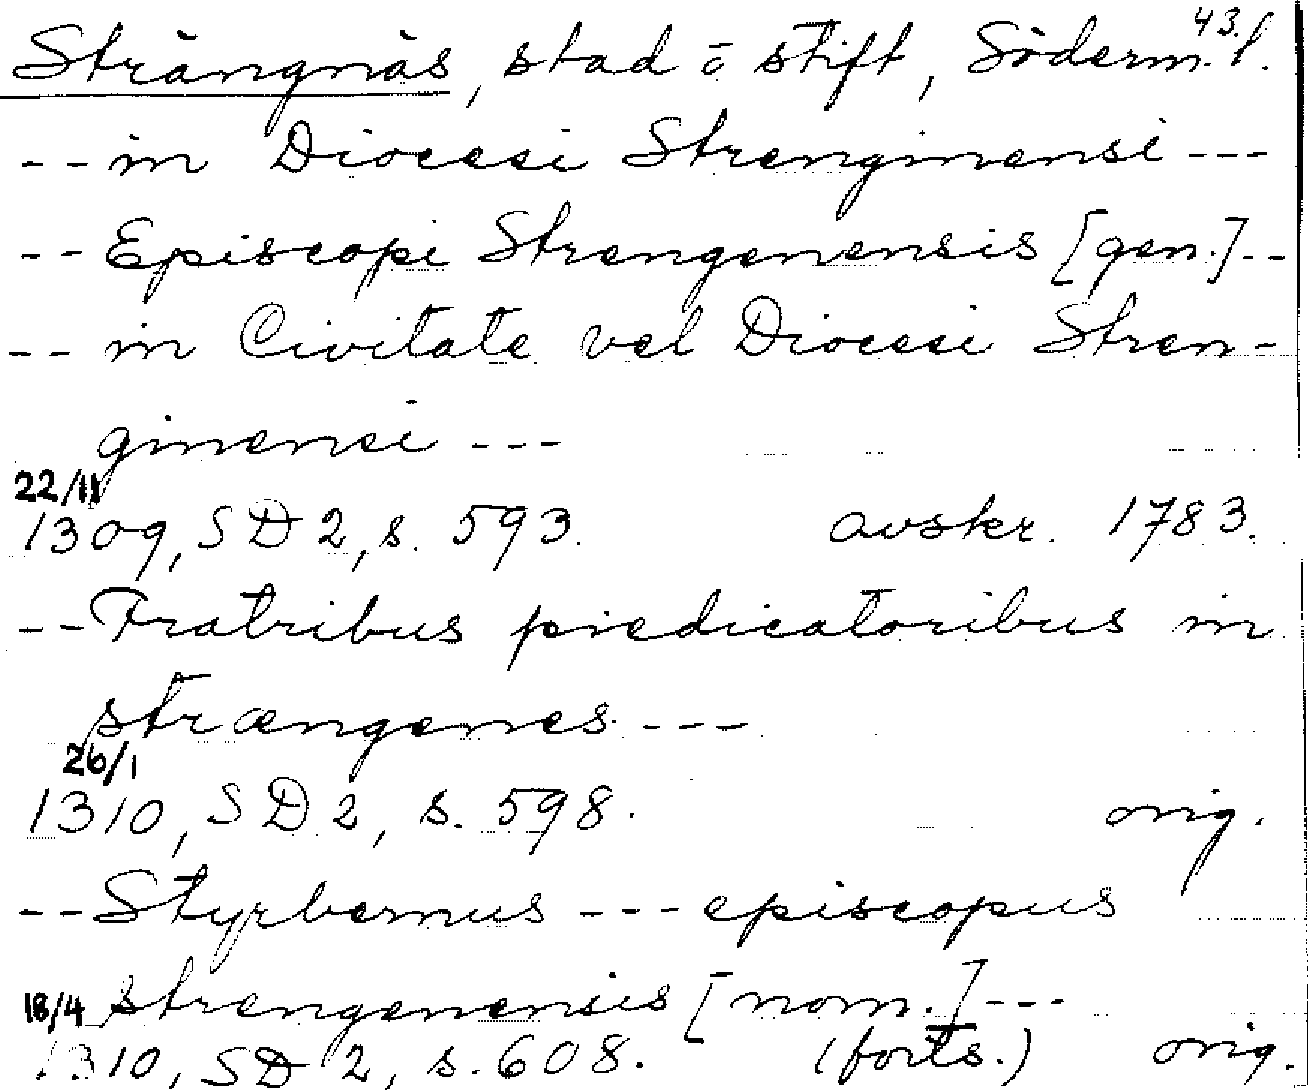 43.
Strängnäs, stad o stift, Söderm.l.
-- in Diocesi Strenginensi ---
-- Episcopi Strengenensis [gen.] --
-- in Civitate vel Diocesi Stren-
ginensi ---
22/11
1309, SD 2, s. 593. avskr. 1783.
-- Fratribus predicatoribus in
strængenes ---
26/1
1310, SD 2, s. 598. orig.
-- Styrbernus --- episcopus
strengenensis [nom.] ---
18/4
1310, SD 2, s. 608. (forts.) orig.